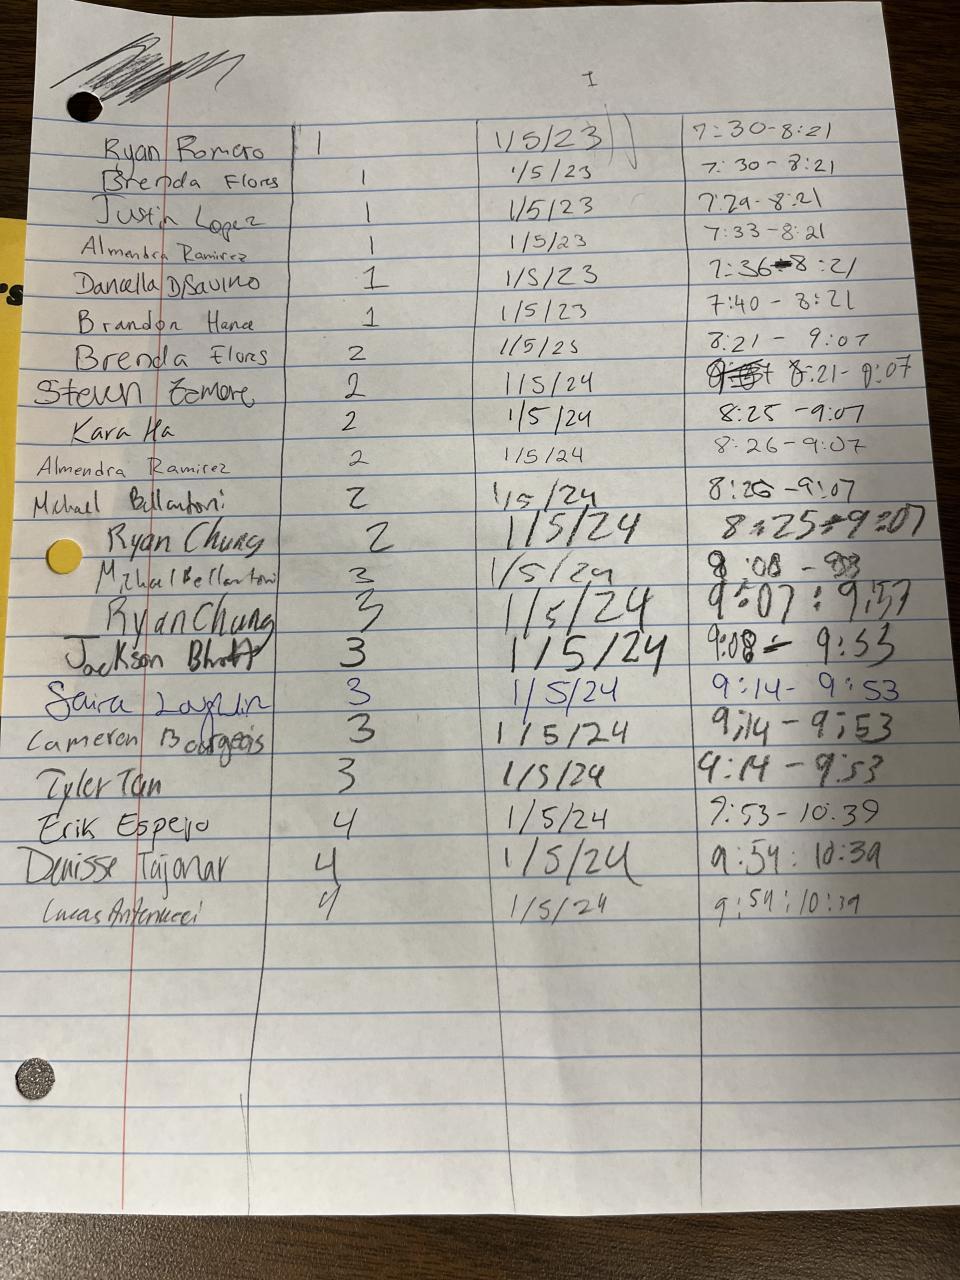 I
Ryan Romero 1 1/5/23 7:30-8:21
Brenda Flores 1 1/5/23 7:30-8:21
Justin Lopez 1 1/5/23 7:29-8:21
Almendra Ramirez 1 1/5/23 7:33-8:21
's
Daniella DiSavino 1 1/5/23 7:36-8:21
Brandon 1 1/5/23 7:40-8:21
Brenda Flores 2 1/5/23 8:21-9:07
Steven 2 1/5/24 8:21-9:07
Kara Ha 2 1/5/24 8:25-9:07
Almendra Ramirez 2 1/5/24 8:26-9:07
Michael Bellantoni 2 1/5/24 8:26-9:07
Ryan Chung 2 1/5/24 8:25-9:07
Michael Bellantoni 3 1/5/24 9:08 -
Ryan Chung 3 1/5/24 9:07:9:53
Jackson 3 1/5/24 9:08-9:53
Saira 3 1/5/24 9:14-9:53
Cameron Bourgeois 3 1/5/24 9:14-9:53
Tyler Tan 3 1/5/24 9:14-9:53
Erik Espejo 4 1/5/24 9:53-10:39
Denisse Tajonar 4 1/5/24 9:54:10:39
Lucas Antenucci 4 1/5/24 9:54:10:39